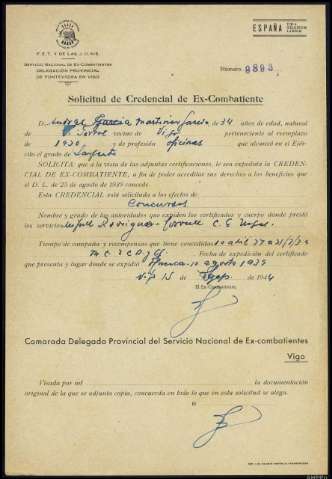 F.E.T. Y DE LAS J.O.N.S.
SERVICIO NACIONAL DE EX-COMBATIENTES
DELEGACIÓN PROVINCIAL
DE PONTEVEDRA EN VIGO
ESPAÑA UNA GRANDE LIBRE
Número 9893
Solicitud de Credencial de Ex-Combatiente
D. García Martínez García de 34 años de edad, natural
de Ferrol vecino de Vigo perteneciente al reemplazo
de 1930, y de profesión oficinas que alcanzó en el Ejér-
cito el grado de Sargento
SOLICITA: que a la vista de las adjuntas certificaciones, le sea expedida la CREDEN-
CIAL DE EX-COMBATIENTE, a fin de poder acreditar sus derechos a los beneficios que
el D. L. de 25 de agosto de 1939 concede.
Esta CREDENCIAL está solicitada a los efectos de
Concursos
Nombre y grado de las autoridades que expiden los certificados y cuerpo donde prestó
los servicios Rodríguez C. E.
Tiempo de campaña y recompensas que tiene concedidas
Fecha de expedición del certificado
que presenta y lugar donde se expidió agosto 1939
Vigo 15 de 1944
El Ex-Combatiente,
Camarada Delegado Provincial del Servicio Nacional de Ex-combatientes
Vigo
Visada por mí la documentación
original de la que se adjunta copia, concuerda en todo lo que en esta solicitud se alega.